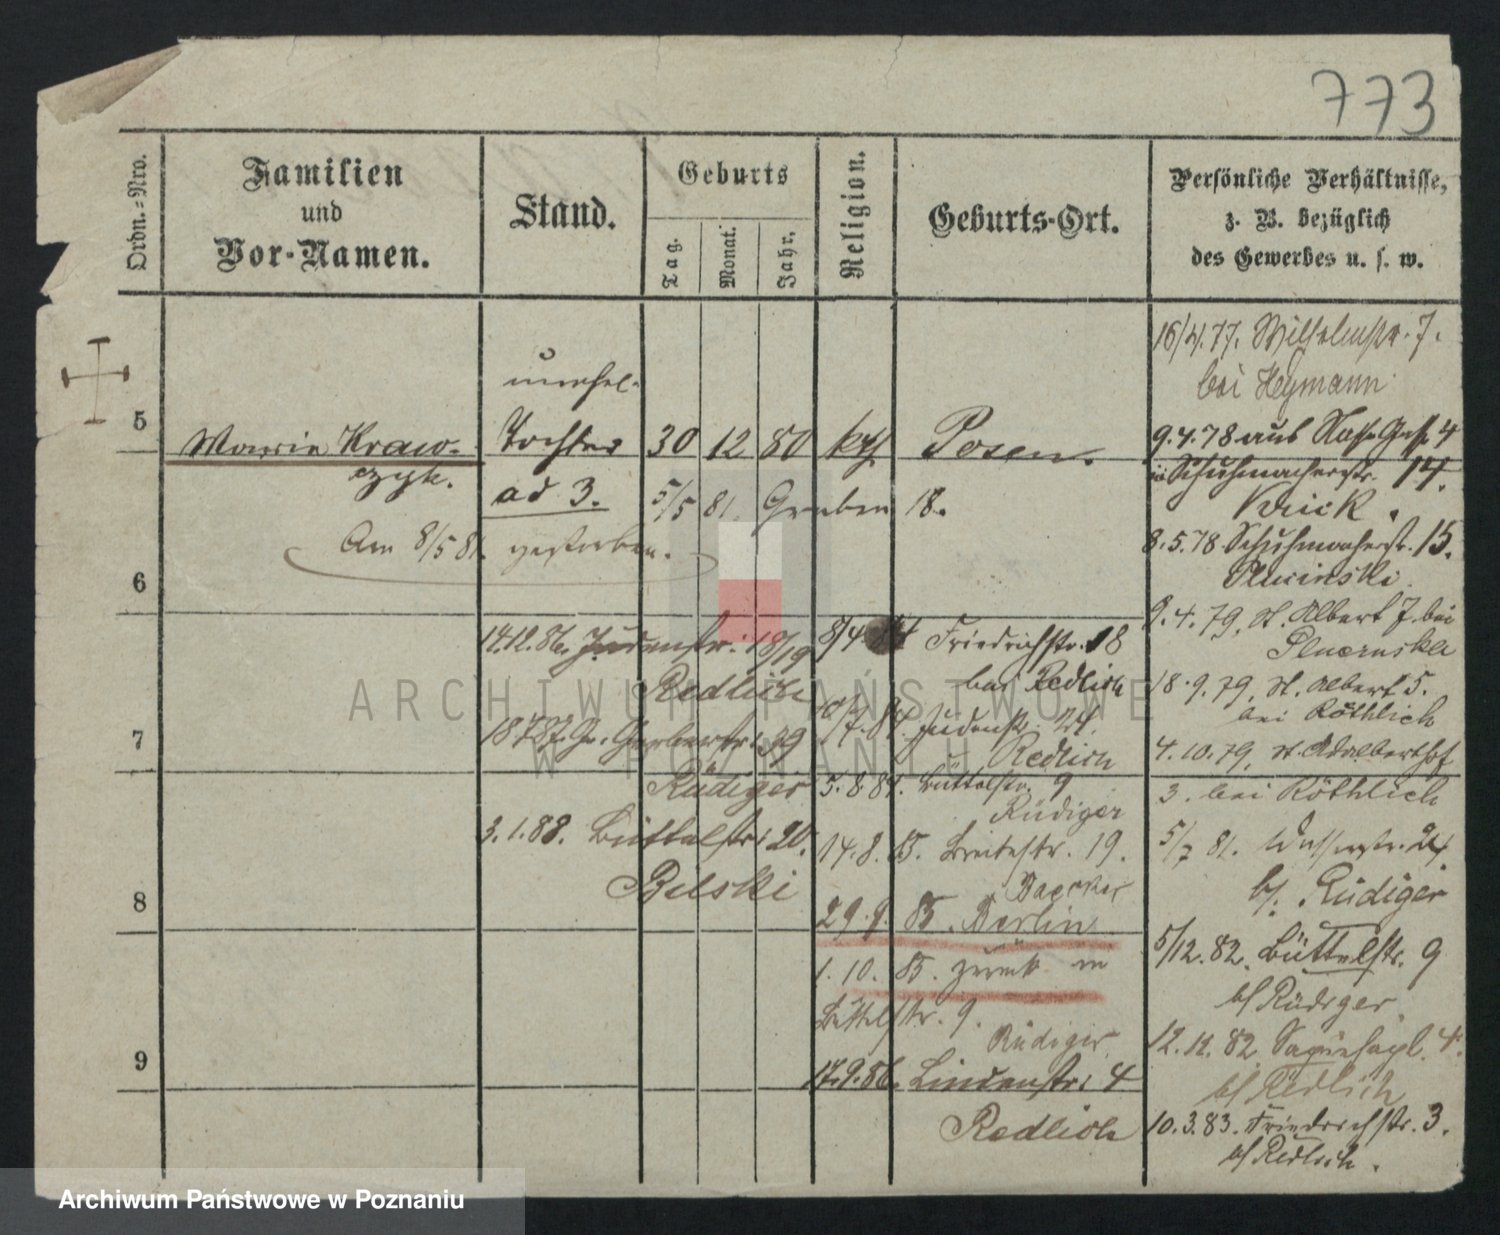 773
Ordn.=Nro.
Familien
und
Vor-Namen.
Stand.
Geburts
Tag.
Monat.
Jahr.
Religion.
Geburts-Ort.
Persönliche Verhältnisse,
z. B. bezüglich
des Gewerbes u. s. w.
5
unehel.
Maria Kraw-
czyk.
Tochter
ad 3.
30 12 80 kth Posen.
5/5 81. Graben 18.
Am 8/5 81. gestorben.
6
7
8
9
14.12.86. Judenstr. 18/19
Redlich
18787. Gr. Gerberstr. 39
Rüdiger
3.1.88. Büttelstr. 20.
Belski
8/4 84 Friedrichstr. 18
bei Redlich
/7.84. Judenstr. 24.
Redlich
5.8.84. Büttelstr. 9
Rüdiger
14.8.85. Breitestr. 19.
29.9.85. Berlin
1.10.85. zurück in
Büttelstr. 9.
Rüdiger
17.9.86. Lindenstr. 4
Redlich
16/4.77. Wilhelmstr. 7.
bei Heymann
9.4.78 aus 4
Schuhmacherstr. 14.
8.5.78 Schuhmacherstr. 15.
9.4.79. St. Albert 7. bei
18.9.79. St. Albert 5.
bei Röthlich
4.10.79. St. Adalberthof
3. bei Röthlich
5/7 81. Wasserstr. 24.
b/. Rüdiger
5/12.82. Büttelstr. 9
b/ Rüdiger.
12.12.82 4.
b/ Redlich
10.3.83. Friedrichstr. 3.
b/ Redlich.
ARCHIWUM PAŃSTWOWE
W POZNANIU
Archiwum Państwowe w Poznaniu